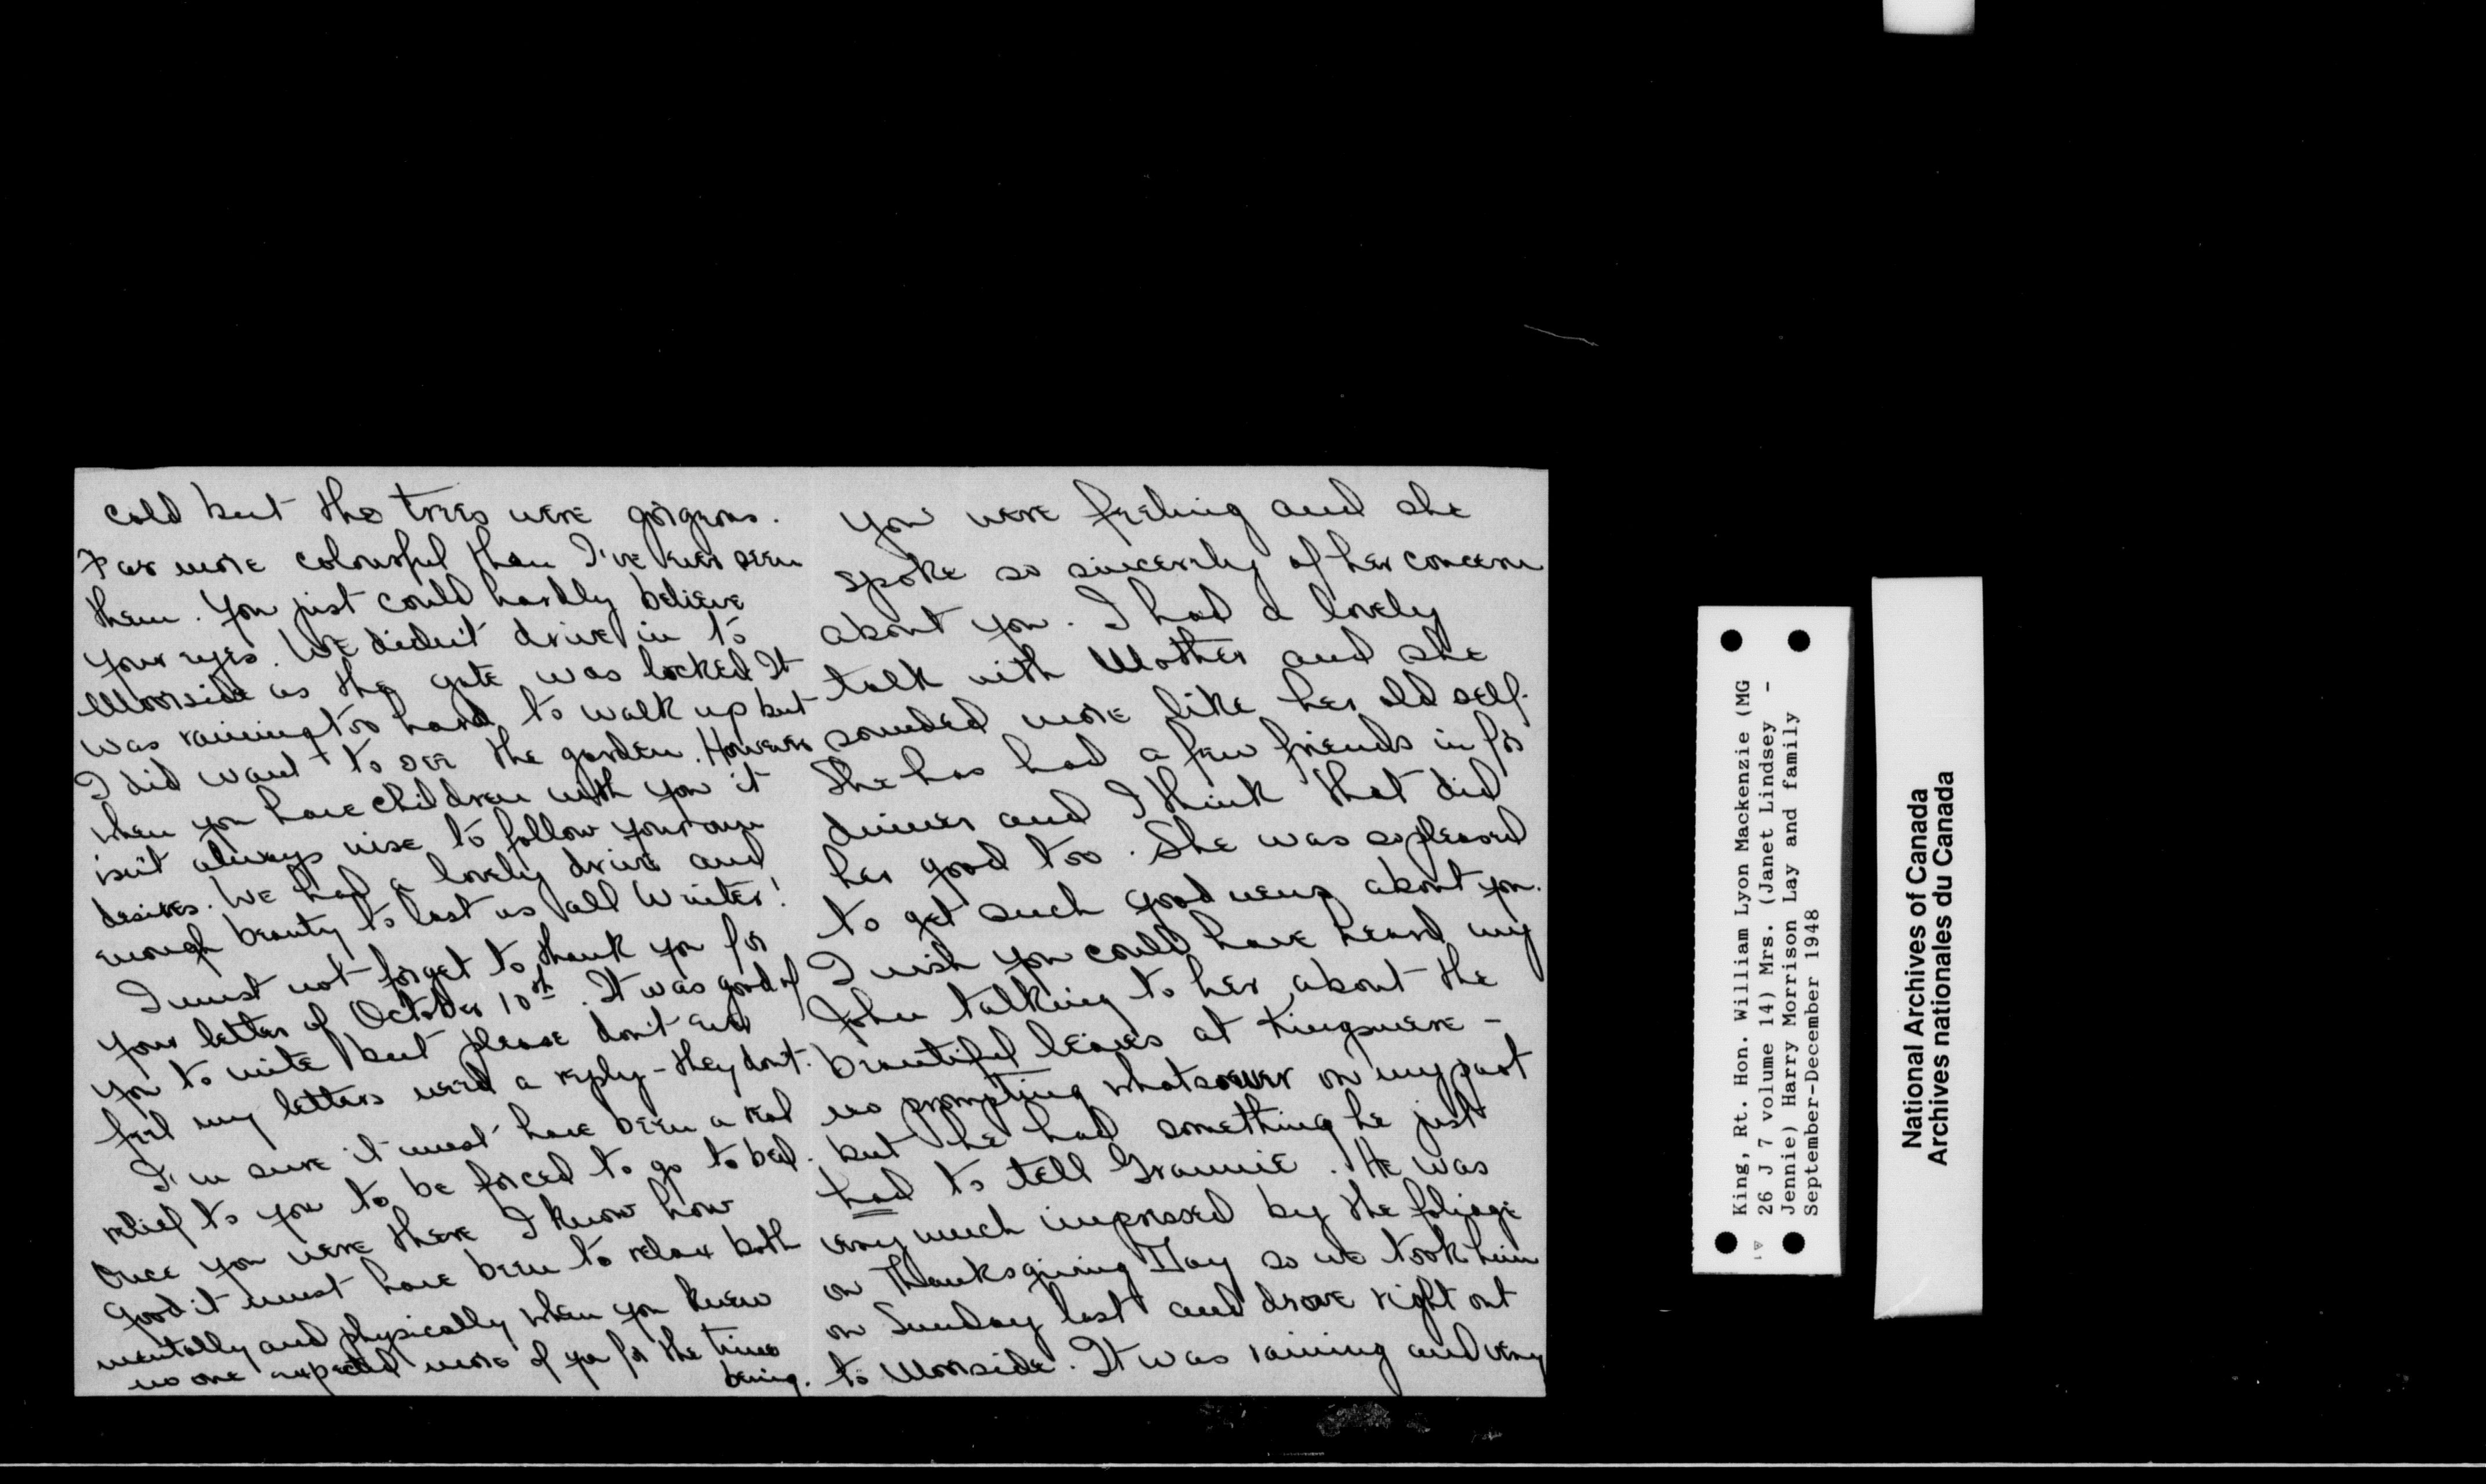 cold but the trees were gorgeous.
Far more colourful than I've ever seen
them. You just could hardly believe
your eyes. We didn't drive in to
Moorside as the gate was locked. It
was raining too hard to walk up but
I did want to see the garden. However
when you have children with you it
isn't always wise to follow your own
desires. We had a lovely drive and
enough beauty to last us all Winter!
I must not forget to thank you for
your letter of October 10th. It was good of
you to write but please don't ever
feel my letters need a reply - they don't.
I'm sure it must have been a real
relief to you to be forced to go to bed.
Once you were there I know how
good it must have been to relax both
mentally and physically when you knew
no one expected more of you for the time
being.
you were feeling and she
spoke so sincerely of her concern
about you. I had a lovely
talk with Mother and she
sounded more like her old self.
She has had a few friends in for
dinner and I think that did
her good too. She was so pleased
to get such good news about you.
I wish you could have heard my
John talking to her about the
beautiful leaves at Kingsmere -
no prompting whatsoever on my part
but he had something he just
had to tell Grannie. He was
very much impressed by the foliage
on Thanksgiving Day so we took him
on Sunday last and drove right out
to Moorside. It was raining and very
King, Rt. Hon. William Lyon Mackenzie (MG
26 J 7 volume 14) Mrs. (Janet Lindsey -
Jennie) Harry Morrison Lay and family
September-December 1948
National Archives of Canada
Archives nationales du Canada